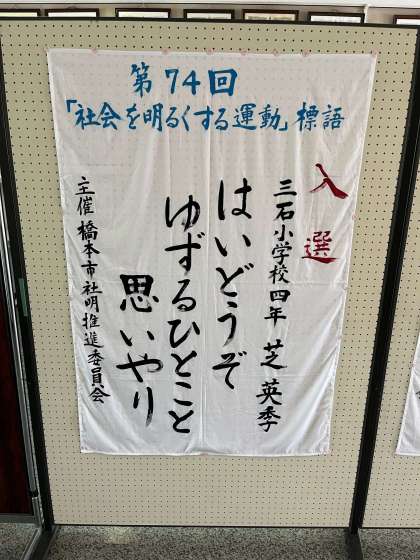 第74回
「社会を明るくする運動」標語
入選
三石小学校四年 芝 英季
はいどうぞ
ゆずるひとこと
思いやり
主催 橋本市社明推進委員会